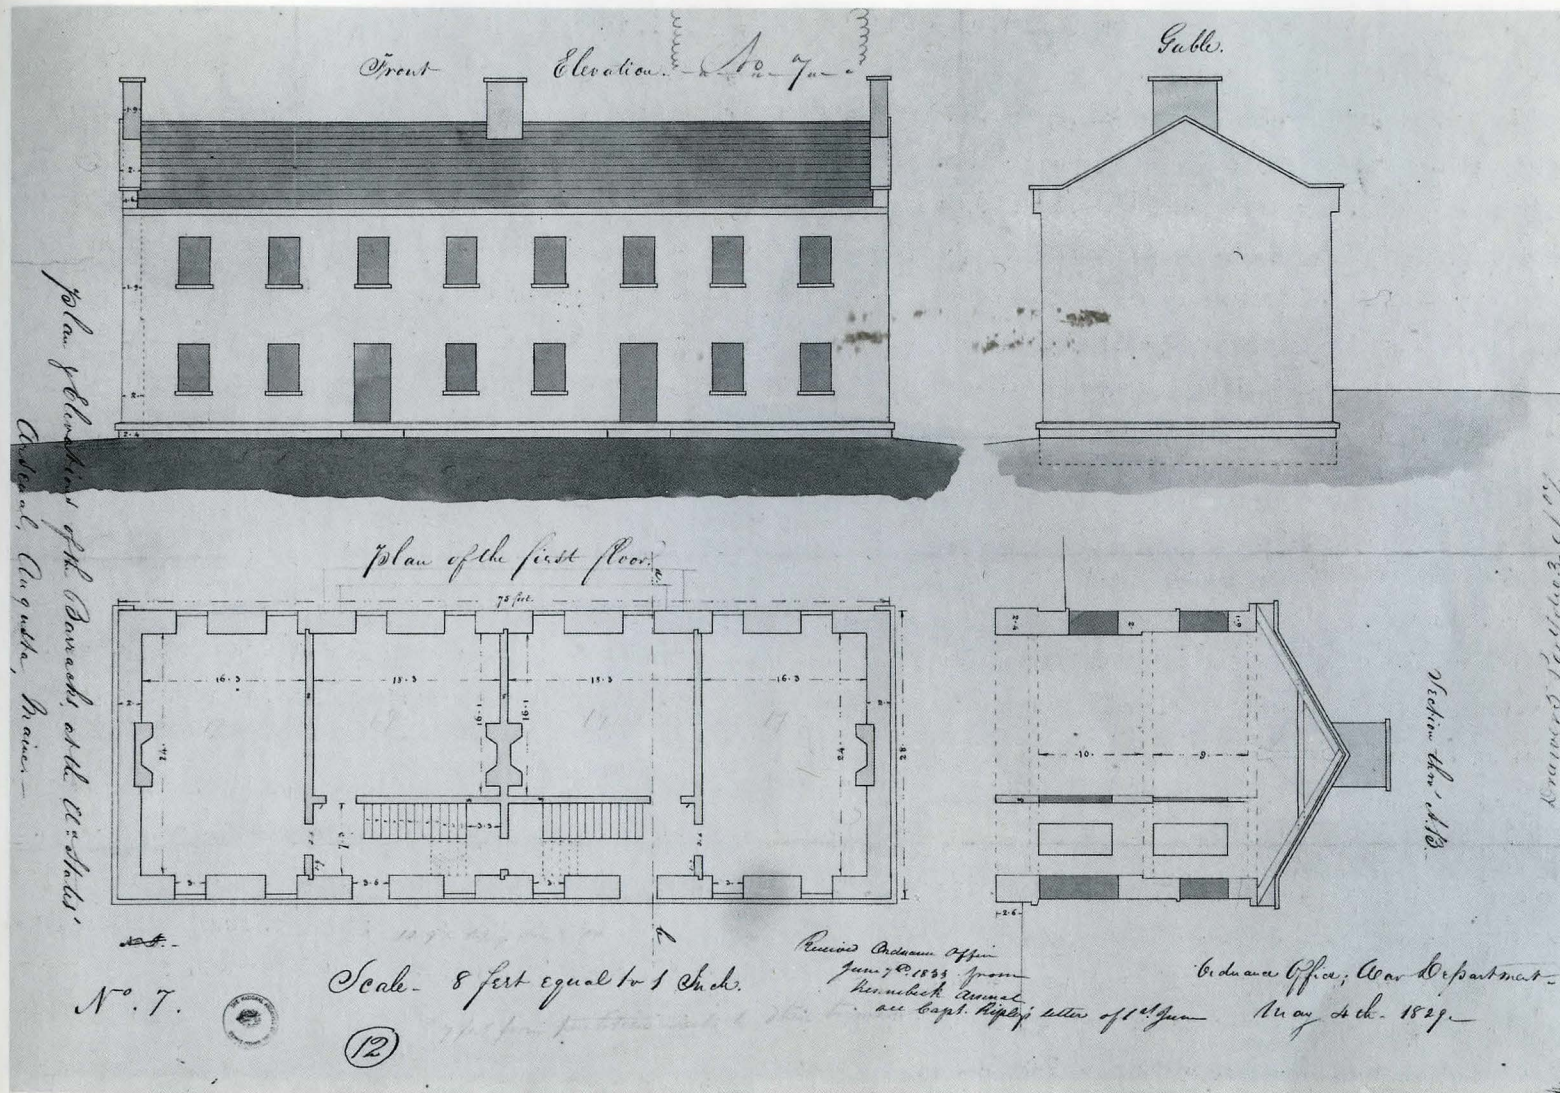 Front Elevation.
No. 7
Gable.
1.9
2
1.6
1.9
2
2.4
Plan & Elevations of the Barracks, at the Ud. States'
Arsenal, Augusta, Maine
Plan of the first floor.
a
75 feet.
16.3
15.3
15.3
16.3
2
24
16.1
16.1
24
2
28
3.3
3
3.6
3
3
b
2.4
2
10
9
2.6
Section thro' A.B.
No. 7.
Scale - 8 feet equal to 1 Inch.
Received Ordnance Office
June 7th 1833 from
Kennebeck Arsenal
see Capt. Ripley's letter of 1st June
Ordnance Office; War Department
May 4th 1829.
12